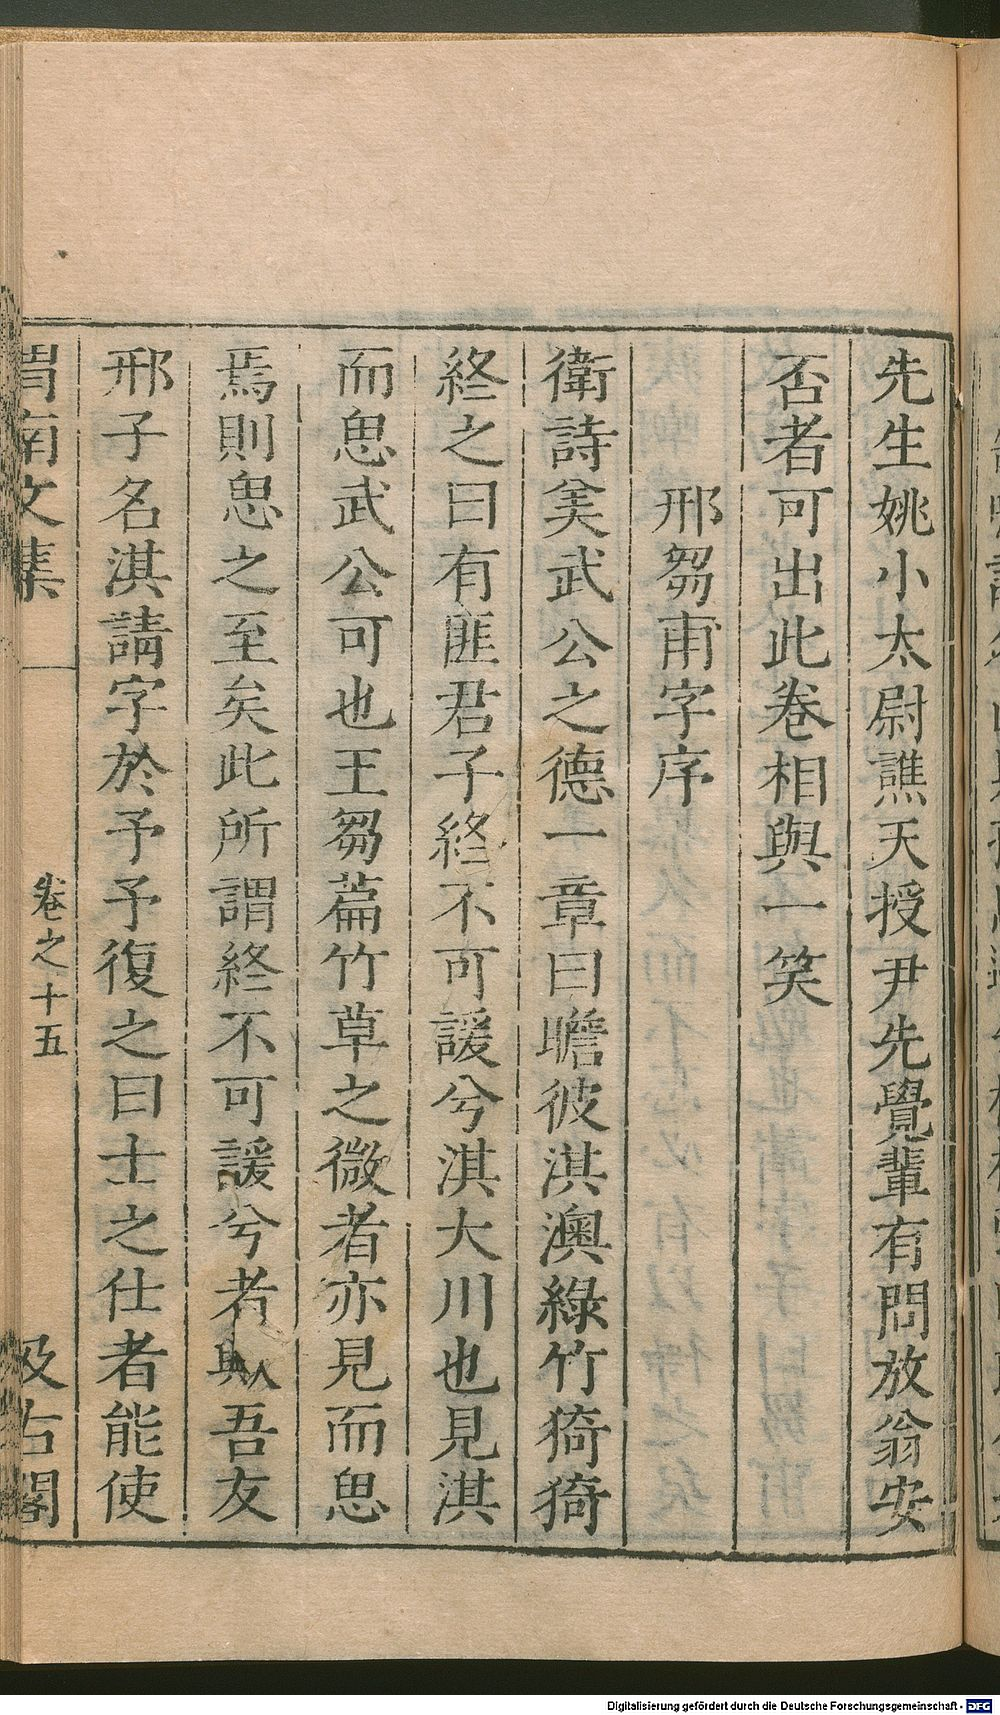 先生姚小太尉譙天授尹先覺輩有問放翁安
否者可出此卷相與一笑
邢芻甫字序
衛詩美武公之德一章曰瞻彼淇澳綠竹猗猗
終之曰有匪君子終不可諼兮淇大川也見淇
而思武公可也王芻萹竹草之微者亦見而思
焉則思之至矣此所謂終不可諼兮者歟吾友
邢子名淇請字於予予復之曰士之仕者能使
渭南文集 卷之十五 汲古閣
Digitalisierung gefördert durch die Deutsche Forschungsgemeinschaft - DFG